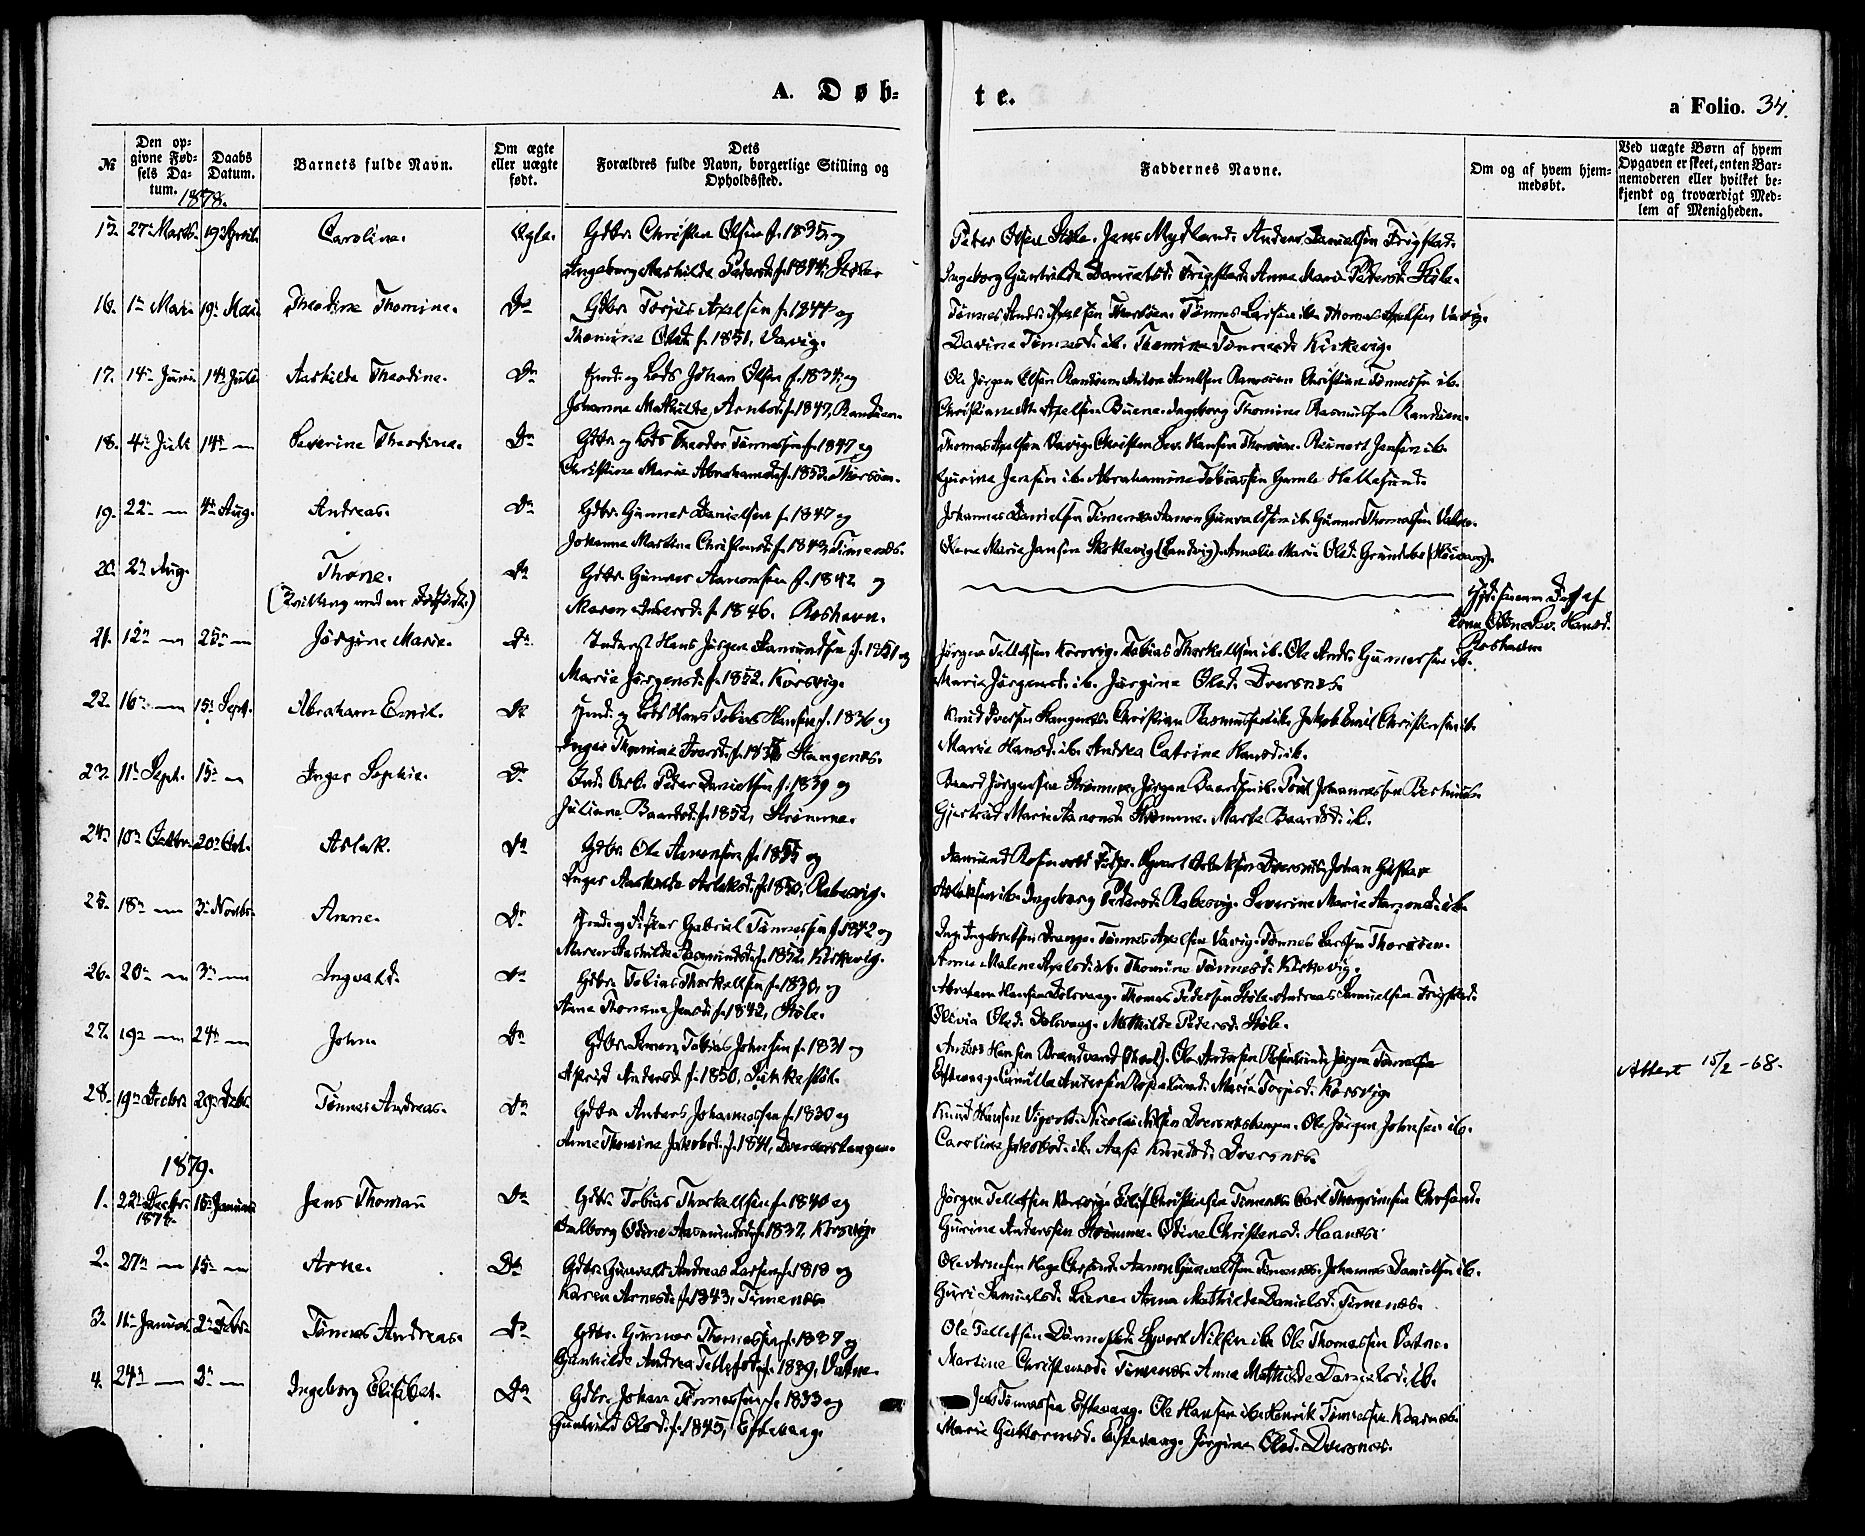 A. Døb-
te.
a Folio. 34.
№
Den op-
givne Fød-
sels Da-
tum.
Daabs
Datum.
Barnets fulde Navn.
Om ægte
eller uægte
født.
Dets
Forældres fulde Navn, borgerlige Stilling og
Opholdssted.
Faddernes Navne.
Om og af hvem hjem-
medøbt.
Ved uægte Børn af hvem
Opgaven er skeet, enten Bar-
nemoderen eller hvilket be-
kjendt og troværdigt Med-
lem af Menigheden.
1878.
15. 27de Marts. 19de April. Caroline. Ægte. Gdbr. Christen Olsen f. 1835, og
Ingeborg Aashilde Pedersd. f. 1844, Støle
Peder Olsen Støle. Jens Mydland. Anders Danielsen Trygstad.
Ingeborg Gunhilde Danielsd. Anna Marie Pedersd. Støle.
16. 1ste Mai 19de Mai Theodine Thomine. Do Gdbr. Torjus Axelsen f. 1844 og
Thomine Olsd. f. 1851, Vaavig.
Tønnes Andr. Axelsen Tønnes Larsen ib. Thomas Axelsen Vaavig.
Davine Tønnesd. ib. Thomine Tønnesd. Kirkevig.
17. 14de Juni 14de Juli Aashilde Theodine. Do Lods Johan Olsen f. 1834, og
Johanne Mathilde Arntsd. f. 1847, Randøen.
Ole Jørgen Olsen Randøen. Anton Arntsen Randøen. Christian Tønnesen ib.
Christiane M. Axelsen Buene. Ingeborg Thomine Rasmussen Randøen.
18. 4de Juli 14de — Severine Theodine. Do Gdbr. og Lods Theodor Tønnessen f. 1847 og
Christine Marie Abrahamsd. f. 1852, Thorsøen.
Thomas Axelsen Vaavig. Christen Sev. Hansen Thorsøen. Reinert Jensen ib.
Gurine Jensen ib. Abrahamine Tobiassen Gamle Hellesund.
19. 22de — 4de Aug. Andreas. Do Gdbr. Gunner Danielsen f. 1847 og
Johanne Martine Christensd. f. 1843, Timenes.
Johannes Danielsen Timenes. Aanon Gunvaldsen ib. Gunner Thomassen Vatne.
Olene Marie Jansen (Randvig). Amalie Marie Olsd.
20. 2de Aug. Thone. Do Gdbr. Gunner Aanonsen f. 1842 og
(Tvilling med en Dødfødt.) Maren Andersd. f. 1846. Roshavn.
Hjd. samme Dag af
Hansd.
21. 12te — 25de — Jørgine Marie. Do Inderst Hans Jørgen Aamundsen f. 1851 og
Marie Jørgensd. f. 1852. Korsvig.
Jørgen Tellefsen Korsvig. Tobias Thorkelsen ib. Ole Andr. Gunnersen ib.
Marie Jørgensd. ib. Jørgine Olsd. Dversnes.
22. 16de — 15de Sept. Abraham Emil. Do og Lods Hans Tobias Hansen f. 1836 og
Inger Thomine Iversd. f. Stangenes.
Knud Iversen Stangenes. Christian Rasmussen ib. Jakob Emil Christensen ib.
Marie Hansd. ib. Andrea Catrine Hansd. ib.
23. 11te Sept. 15de — Inger Sophie. Do Ind. Arb. Peder Danielsen f. 1839 og
Juliane Baardsd. f. 1852, Strømme.
Baard Jørgensen Strømme. Jørgen Baardsen ib. Poul Johannessen
Gjertrud Marie Aanonsd. Strømme. Marte Baardsd. ib.
24. 10de Octbr. 20de Oct. Aslak. Do Gdbr. Ole Aanonsen f. 1855 og
Inger Aashilde Aslaksd. f. 1850, Rabesvig.
Aamund Rosenvold. Dversnes. Johan Gustav
Aslaksen ib. Ingeborg Pedersd. Rabesvig. Severine Marie Aanonsd. ib.
25. 18de — 3de Novbr. Anne. Do og Fisker Gabriel Tønnessen f. 1842 og
Maren Aashilde Aasmundsd. f. 1852. Kirkevig.
Tønnes Axelsen Vaavig. Tønnes Larsen Thorsøen.
Anne Malene Axelsd. ib. Thomine Tønnesd. Kirkevig.
26. 20de — 3de — Ingvald. Do Gdbr. Tobias Thorkelsen f. 1830, og
Anne Thomine Jensd. f. 1842, Støle.
Abraham Hansen Dolsvaag. Thomas Pedersen Støle. Andreas Samuelsen Trygstad.
Olivia Olsd. Dolsvaag. Mathilde Pedersd. Støle.
27. 19de — 24de — John. Do Gdbr. Simon Tobias Johnsen f. 1831 og
Astrid Andersd. f. 1850,
Anders Hansen Brandvand. Ole Andersen Rosenlund. Jørgen Tønnessen
Eftevaag. Gunilla Andersen Rosenlund. Maria Torjusd. Korsvig.
Attest 15/2 -68.
28. 19de Decbr. 29de Decbr. Tønnes Andreas. Do Gdbr. Anders Johannessen f. 1830 og
Anne Thomine Jakobsd. f. 1841, Dversnestangen.
Knud Hansen Vigvold. Nicolai Nilsen Dversnestangen. Ole Jørgen Johnsen ib.
Caroline Jakobsd. ib. Aase Knudsd. Dversnes.
1879.
1. 22de Decbr. 1878. 15de Januar Jens Thoman Do Gdbr. Tobias Thorkelsen f. 1840 og
Valborg Odine Aasmundsd. f. 1837, Korsvig.
Jørgen Tellefsen Korsvig. Eilif Christensen Timenes. Carl Thorgrimsen Chrsand.
Gurine Anderssen Strømme. Odine Christensd. Haanes.
2. 27de — 15de — Arne. Do Gdbr. Gunvald Andreas Larsen f. 1818 og
Karen Arnesd. f. 1843, Timenes.
Ole Arnesen Hage Chrsand. Aanon Gunvaldsen Timenes. Johannes Danielsen ib.
Guri Samuelsd. Liene. Anna Mathilde Danielsd. Timenes.
3. 11te Januar 2de Febr. Tønnes Andreas. Do Gdbr. Gunner Thomassen f. 1837 og
Gunhilde Andrea Tellefsd. f. 1839, Vatne.
Ole Tellefsen Syvert Nilsen ib. Ole Thomassen Vatne.
Martine Christensd. Timenes. Anne Mathilde Danielsd. ib.
4. 24de — 2de — Ingeborg Elisabet. Do Gdbr. Johan Tønnessen f. 1833 og
Gunhild Olsd. f. 1845, Eftevaag.
Jens Tønnessen Eftevaag. Ole Hansen ib. Henrik Tønnessen
Marie Guttormsd. Eftevaag. Jørgine Olsd. Dversnes.